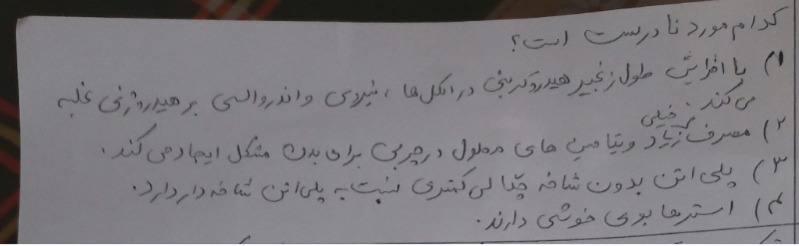 کدام مورد نادرست است؟
۱) با افزایش طول زنجیر هیدروکربنی در الکل ها ، نیروی واندروالسی بر هیدروژنی غلبه
می کند.
۲) مصرف خیلی زیاد ویتامین های محلول در چربی برای بدن مشکل ایجاد می کند.
۳) پلی اتن بدون شاخه چگالی کمتری نسبت به پلی اتن شاخه دار دارد.
۴) استرها بوی خوشی دارند.